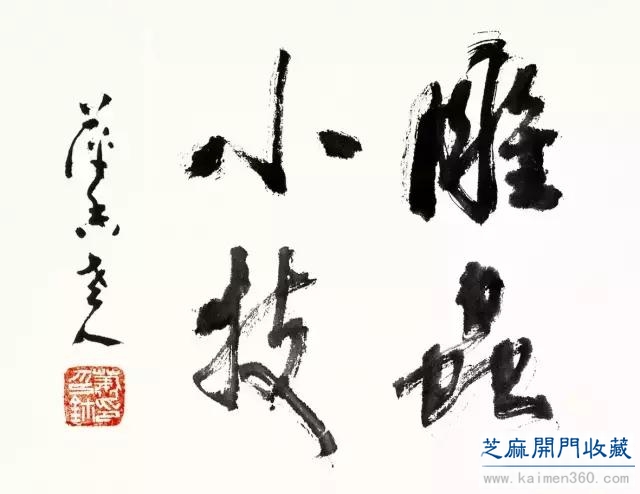 雕虫
小技
萍香老人
芝麻開門收藏
www.kaimen360.com